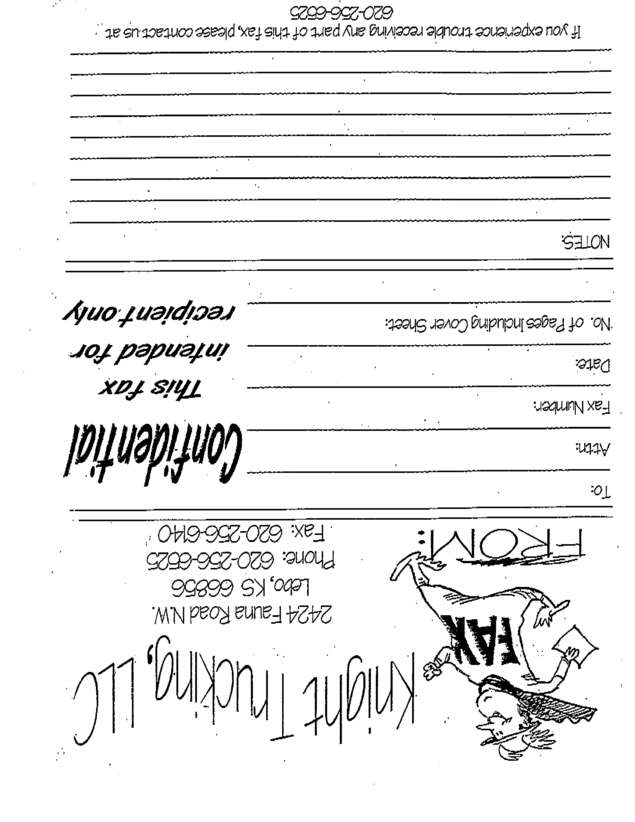 Knight Trucking, LLC
2424 Fauna Road N.W.
Lebo, KS 66856
Phone: 620-256-6525
Fax: 620-256-6140
FAX
FROM:
To:
Attn:
Fax Number:
Date:
No. of Pages Including Cover Sheet:
Confidential
This fax
intended for
recipient only
NOTES:
If you experience trouble receiving any part of this fax, please contact us at
620-256-6525